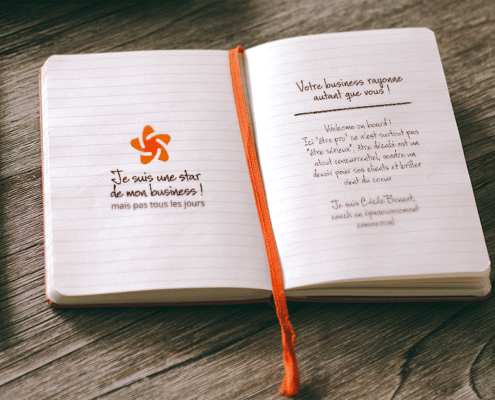 Je suis une star
de mon business !
mais pas tous les jours
Votre business rayonne
autant que vous !
Welcome on board !
Ici "être pro" ce n'est surtout pas
"être sérieux", être décalé est un
atout concurrentiel, rendre un
devoir pour ses clients et briller
vient du coeur
Je suis Cécile Bonnet,
coach en épanouissement